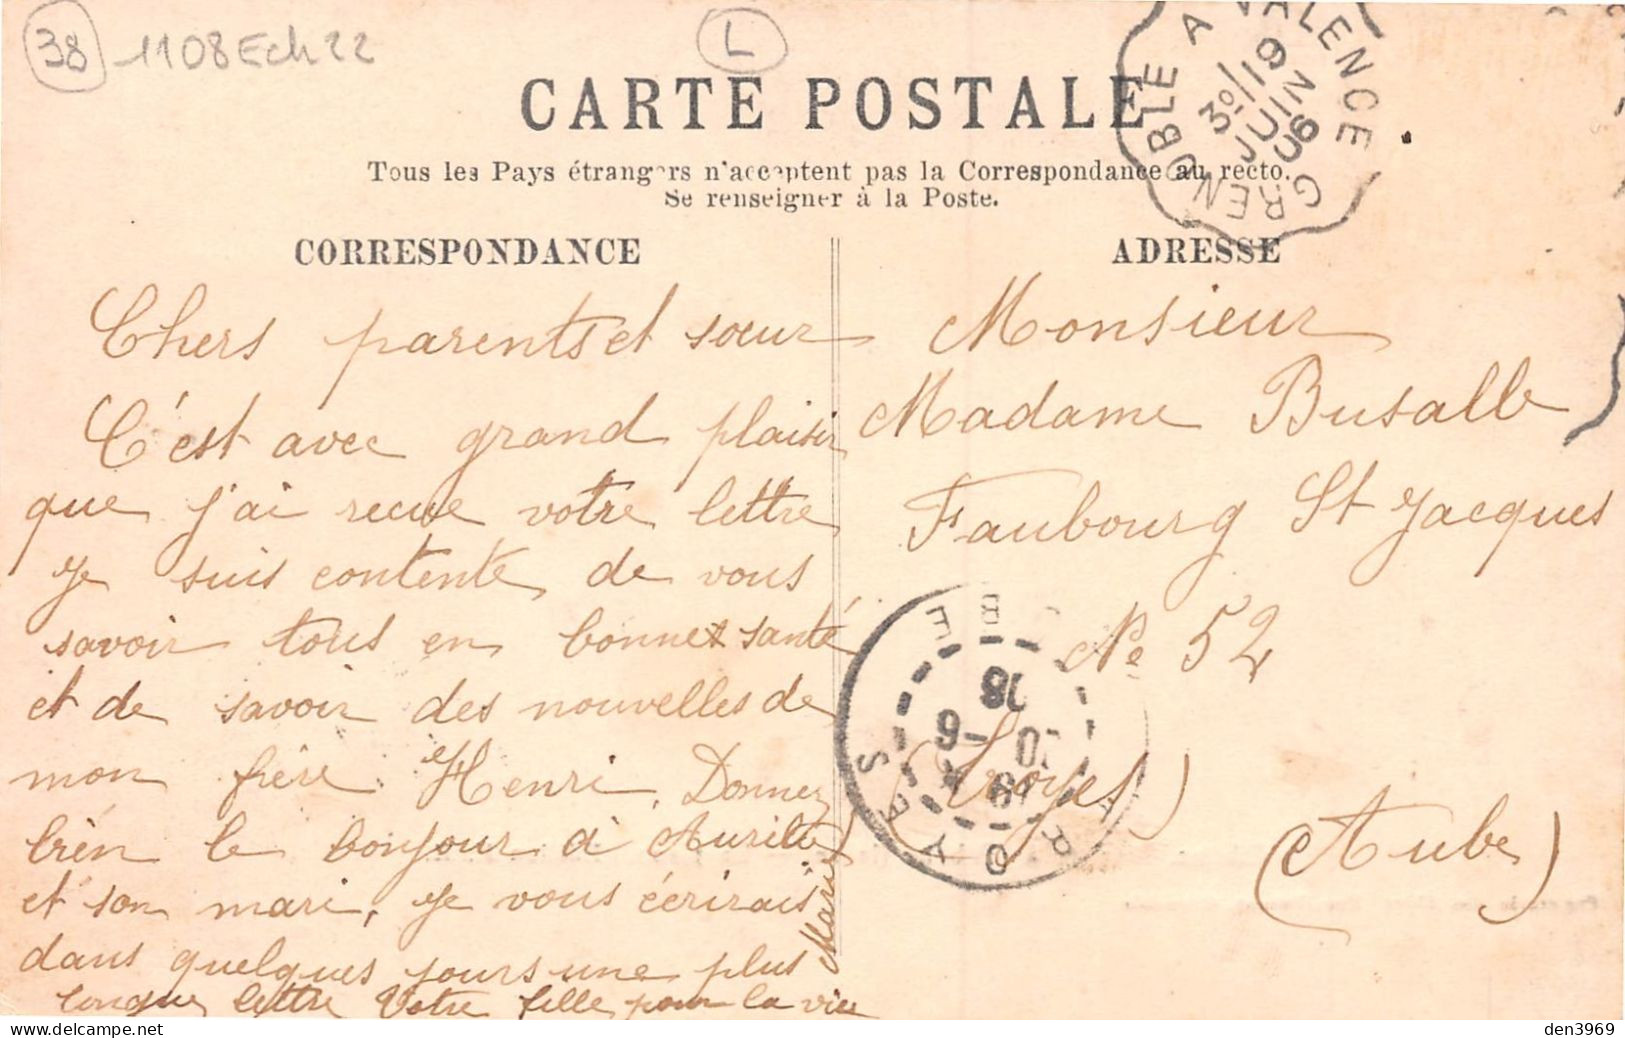 38
1108Ech22
L
CARTE POSTALE
Tous les Pays étrangers n'acceptent pas la Correspondance au recto.
Se renseigner à la Poste.
GRENOBLE A VALENCE
3º/19
JUIN
06
CORRESPONDANCE
Chers parents et sœur
C'est avec grand plaisir
que j'ai recue votre lettre
je suis contente de vous
savoir tous en bonne santé
et de savoir des nouvelles de
mon frère Henri, Donnez
bien le bonjour à
et son mari, je vous écrirais
dans quelques jours une plus
longue lettre Votre fille pour la vie
Marie
ADRESSE
Monsieur
Madame Busalle
Faubourg St Jacques
No 52
(Troyes)
(Aube)
TROYES
AUBE
den3969